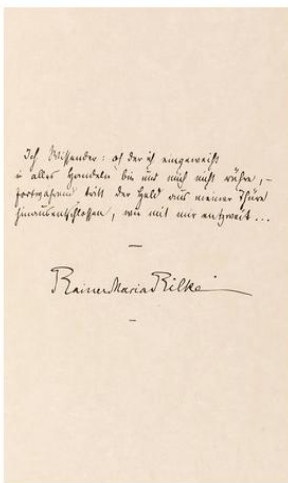 Ich Wissender: oh der ich eingeweiht
in alles Handeln bin und mich nicht rühre, –
fortwährend tritt der Held aus meiner Thüre
hinausentschlossen, wie mit mir entzweit ...
–
Rainer Maria Rilke
–